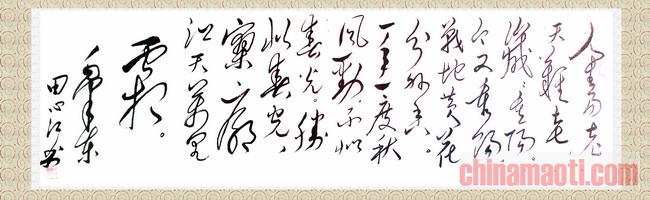 人生易老
天難老
歲歲重陽。
今又重陽
戰地黄花
分外香。
一年一度秋
風勁不似
春光。勝
似春光，
寥廓
江天萬里
霜。
毛澤东
田心江书
chinamaoti.com